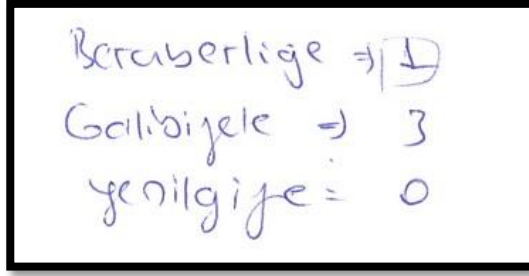 Beraberlige => 1
Galibiyete => 3
yenilgiye = 0